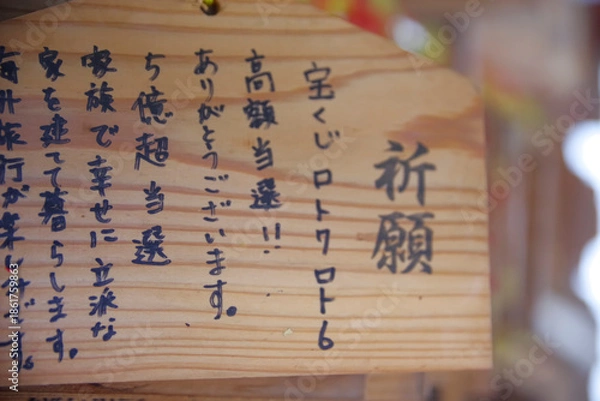 祈願
宝くじロト7ロト6
高額当選!!
ありがとうございます。
5億超当選
家族で幸せに立派な
家を建てて暮らします。
毎月旅行が楽しんで。
Adobe Stock
Adobe Stock
Adobe Stock | #1861759863